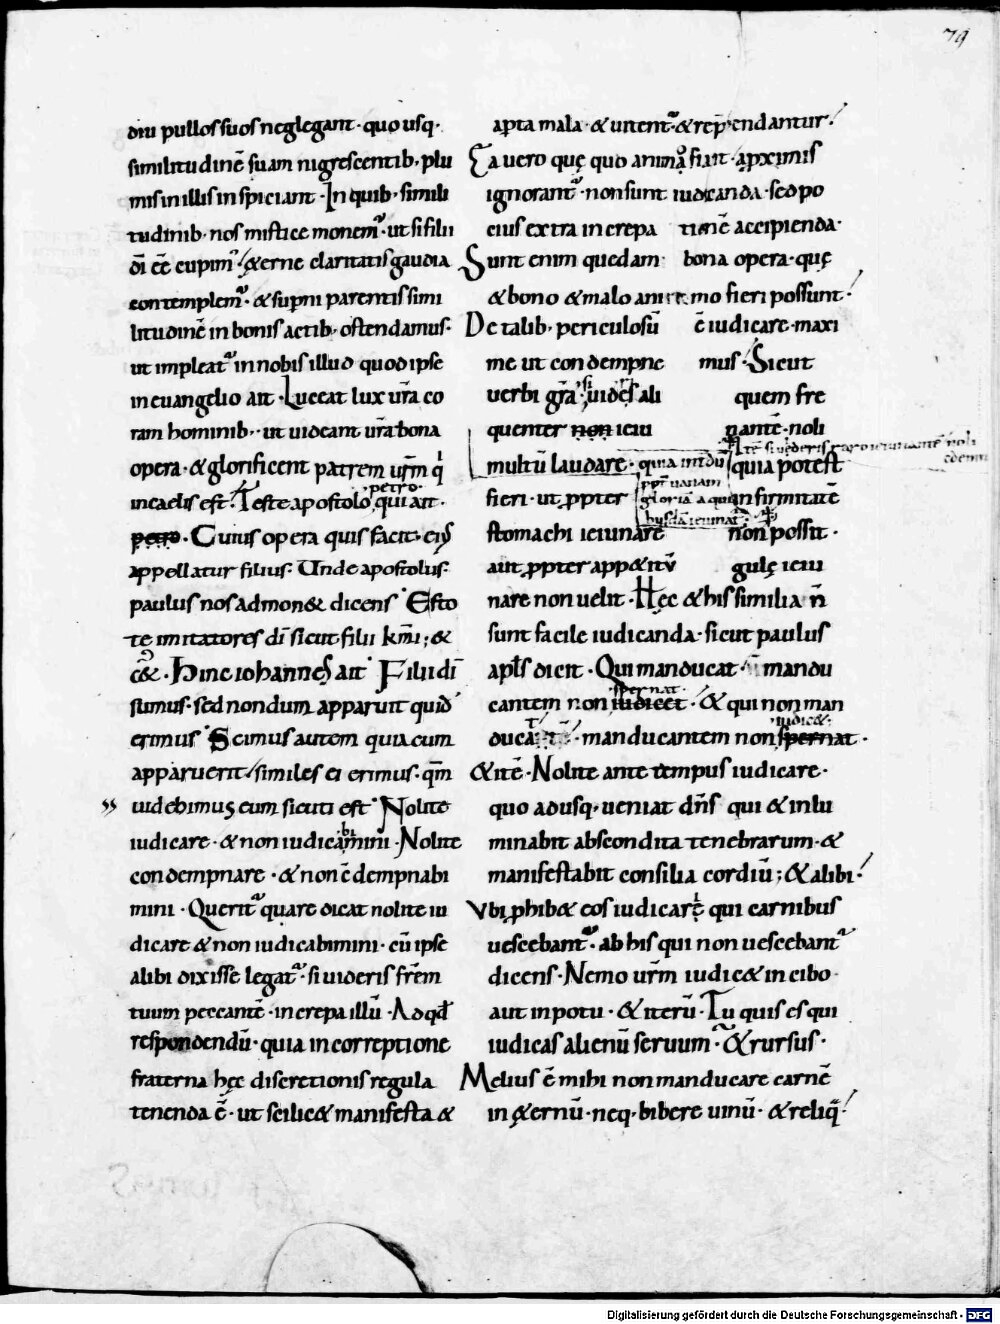 79
diu pullos suos neglegant · quo usq·
similitudinē suam nigrescentib· plu
mis in illis inspiciant · In quib· simili
tudinib· nos mistice monem̃ · ut si filii
dī ēē cupim̃ / & ęterne claritatis gaudia
contemplem̃ · & supni parentis simi
litudinē in bonis actib· ostendamus·
ut impleat̃ in nobis illud quod ipse
in euangelio ait · Luceat lux ur̄a co
ram hominib· · ut uideant ur̄a bona
opera · & glorificent patrem ur̄m q
petro·
in caelis est · Teste apostolo qui ait ·
petro · Cuius opera quis facit · eiꝰ
appellatur filius · Unde apostolus
paulus nos admon& dicens · Esto
te imitatores dī sicut filii kmī ; &
c&̄ · Hinc iohannes ait · Filii dī
sumus · sed nondum apparuit quid
erimus · Scimus autem quia cum
apparuerit / similes ei erimus · qm̄
uidebimus eum sicuti est · Nolite
bi
iudicare · & non iudicamini · Nolite
condempnare · & non c̄dempnabi
mini · Querit̃ quare dicat nolite iu
dicare & non iudicabimini · cū ipse
alibi dixisse legat̃ · si uideris fr̄em
tuum peccantē · increpa illū · Ad qđ
respondendū · quia in correptione
fraterna hęc discretionis regula
tenenda ē · ut scilic& manifesta &
apta mala · & uitent̃ · & rep̄hendantur /
Ea uero quę quo animo fiant · a pximis
ignorant̃ · non sunt iudicanda · sed po
cius extra increpa tionē accipienda ·
Sunt enim quedam bona opera · quę
& bono & malo ani mo fieri possunt /
De talib· periculosū ē iudicare · maxi
me ut condempne mus · Sicut
uerbi gr̄a · si uides ali quem fre
quenter non ieiu nantē · noli
multū laudare · quia intdū quia potest
ppt̄ uanam
gloriā a qui
busdā ieiunat̃ ·
fieri · ut ppter infirmitatē
stomachi ieiunare non possit ·
aut ppter app&itū gulę ieiu
nare non uelit · Hęc & his similia n̄
sunt facile iudicanda · sicut paulus
apl̄s dicit · Qui manducat · mandu
spernat ·
cantem non iudicet · & qui non man
iudic& ·
ducat · manducantem non spernat ·
& itē · Nolite ante tempus iudicare ·
quo adusq· ueniat dn̄s qui & inlu
minabit abscondita tenebrarum · &
manifestabit consilia cordiū ; & alibi · /
Vbi phib& eos iudicare qui carnibus
uescebant̃ · ab his qui non uescebant̃
dicens · Nemo ur̄m iudic& in cibo
aut in potu · & iterū · Tu quis es qui
iudicas alienū seruum · & rursus ·
Melius ē mihi non manducare carnē
in ęternū · neq· bibere uinū · & reliq̄ /
Digitalisierung gefördert durch die Deutsche Forschungsgemeinschaft - DFG